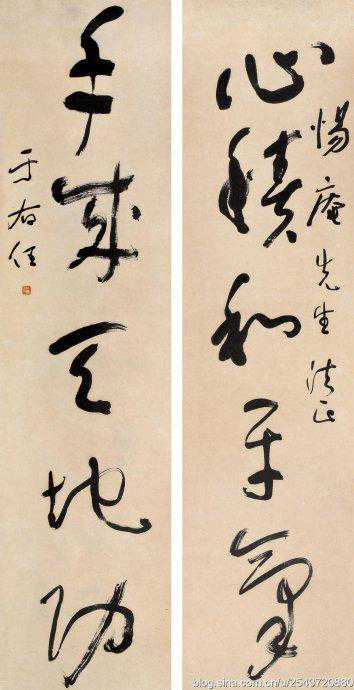 心積和平氣
惕庵先生法正
手成天地功
于右任
blog.sina.com.cn/u/2549720880